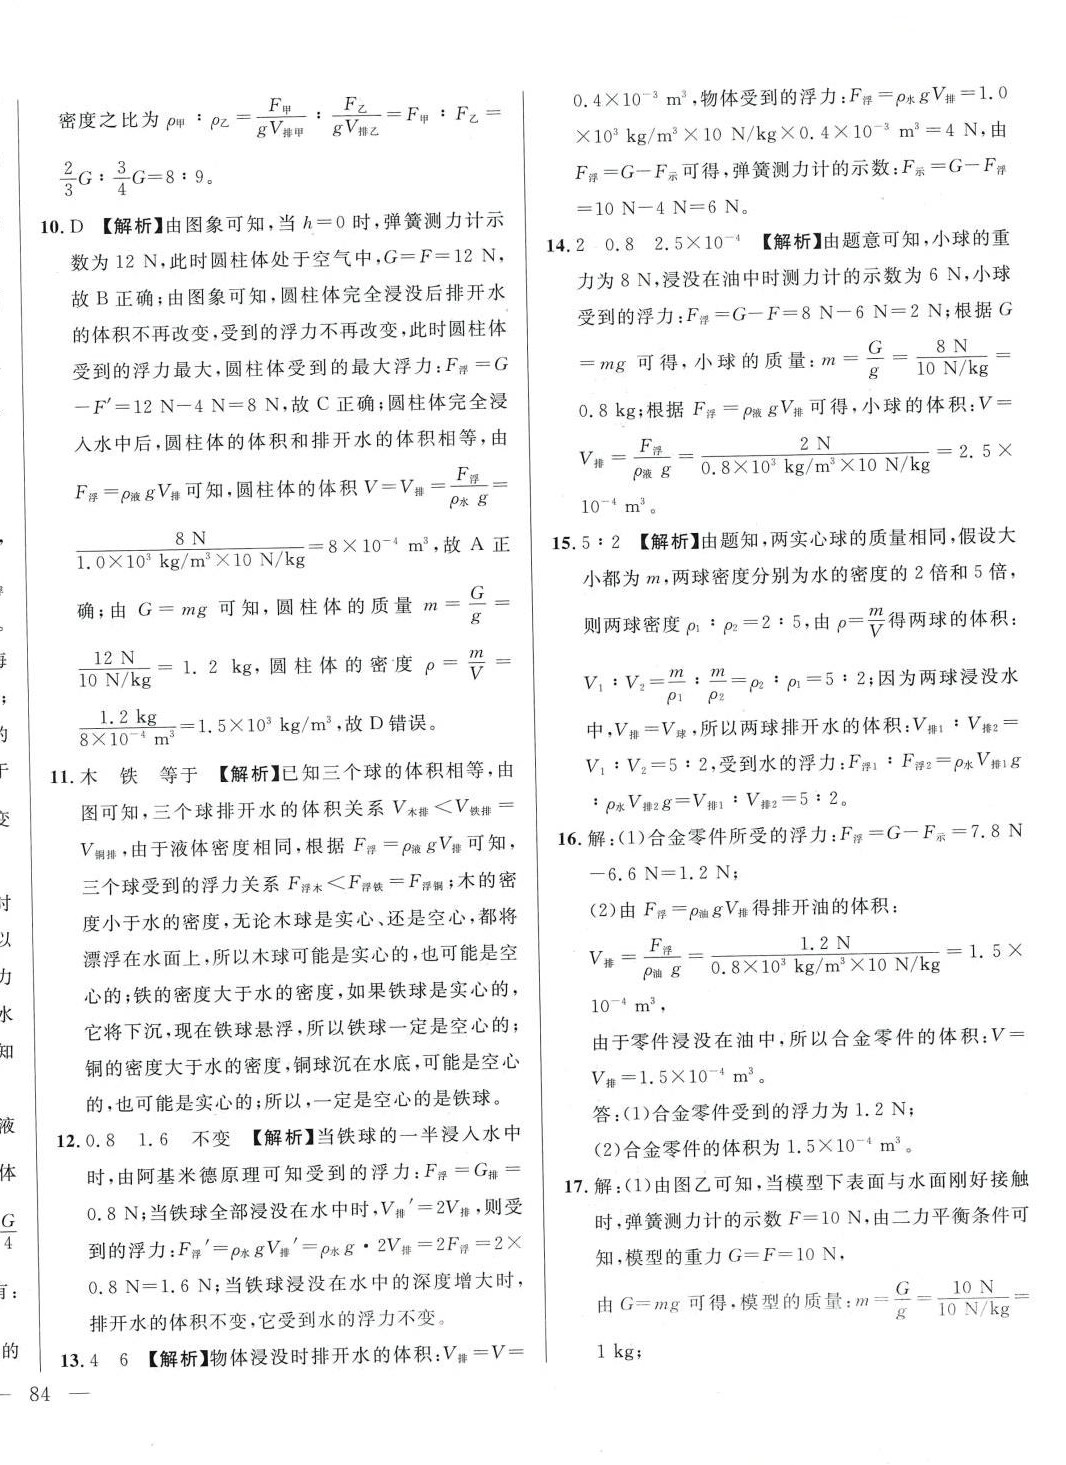 密度之比为 ρ甲∶ρ乙=F甲/gV排甲∶F乙/gV排乙=F甲∶F乙=
2/3G∶3/4G=8∶9。
10.D 【解析】由图象可知,当 h=0 时,弹簧测力计示
数为 12 N,此时圆柱体处于空气中,G=F=12 N,
故 B 正确;由图象可知,圆柱体完全浸没后排开水
的体积不再改变,受到的浮力不再改变,此时圆柱体
受到的浮力最大,圆柱体受到的最大浮力:F浮=G
-F′=12 N-4 N=8 N,故 C 正确;圆柱体完全浸
入水中后,圆柱体的体积和排开水的体积相等,由
F浮=ρ液gV排可知,圆柱体的体积 V=V排=F浮/ρ水g=
8 N/1.0×10³ kg/m³×10 N/kg=8×10⁻⁴ m³,故 A 正
确;由 G=mg 可知,圆柱体的质量 m=G/g=
12 N/10 N/kg=1.2 kg,圆柱体的密度 ρ=m/V=
1.2 kg/8×10⁻⁴ m³=1.5×10³ kg/m³,故 D 错误。
11.木 铁 等于 【解析】已知三个球的体积相等,由
图可知,三个球排开水的体积关系 V木排<V铁排=
V铜排,由于液体密度相同,根据 F浮=ρ液gV排可知,
三个球受到的浮力关系 F浮木<F浮铁=F浮铜;木的密
度小于水的密度,无论木球是实心、还是空心,都将
漂浮在水面上,所以木球可能是实心的,也可能是空
心的;铁的密度大于水的密度,如果铁球是实心的,
它将下沉,现在铁球悬浮,所以铁球一定是空心的;
铜的密度大于水的密度,铜球沉在水底,可能是空心
的,也可能是实心的;所以,一定是空心的是铁球。
12.0.8 1.6 不变 【解析】当铁球的一半浸入水中
时,由阿基米德原理可知受到的浮力:F浮=G排=
0.8 N;当铁球全部浸没在水中时,V排′=2V排,则受
到的浮力:F浮′=ρ水gV排′=ρ水g·2V排=2F浮=2×
0.8 N=1.6 N;当铁球浸没在水中的深度增大时,
排开水的体积不变,它受到水的浮力不变。
13.4 6 【解析】物体浸没时排开水的体积:V排=V=
— 84 —
0.4×10⁻³ m³,物体受到的浮力:F浮=ρ水gV排=1.0
×10³ kg/m³×10 N/kg×0.4×10⁻³ m³=4 N,由
F浮=G-F示可得,弹簧测力计的示数:F示=G-F浮
=10 N-4 N=6 N。
14.2 0.8 2.5×10⁻⁴ 【解析】由题意可知,小球的重
力为 8 N,浸没在油中时测力计的示数为 6 N,小球
受到的浮力:F浮=G-F=8 N-6 N=2 N;根据 G
=mg 可得,小球的质量:m=G/g=8 N/10 N/kg=
0.8 kg;根据 F浮=ρ液gV排可得,小球的体积:V=
V排=F浮/ρ液g=2 N/0.8×10³ kg/m³×10 N/kg=2.5×
10⁻⁴ m³。
15.5∶2 【解析】由题知,两实心球的质量相同,假设大
小都为 m,两球密度分别为水的密度的 2 倍和 5 倍,
则两球密度 ρ₁∶ρ₂=2∶5,由 ρ=m/V得两球的体积:
V₁∶V₂=m/ρ₁∶m/ρ₂=ρ₂∶ρ₁=5∶2;因为两球浸没水
中,V排=V球,所以两球排开水的体积:V排1∶V排2=
V₁∶V₂=5∶2,受到水的浮力:F浮1∶F浮2=ρ水V排1g
∶ρ水V排2g=V排1∶V排2=5∶2。
16.解:(1)合金零件所受的浮力:F浮=G-F示=7.8 N
-6.6 N=1.2 N;
(2)由 F浮=ρ油gV排得排开油的体积:
V排=F浮/ρ油g=1.2 N/0.8×10³ kg/m³×10 N/kg=1.5×
10⁻⁴ m³,
由于零件浸没在油中,所以合金零件的体积:V=
V排=1.5×10⁻⁴ m³。
答:(1)合金零件受到的浮力为 1.2 N;
(2)合金零件的体积为 1.5×10⁻⁴ m³。
17.解:(1)由图乙可知,当模型下表面与水面刚好接触
时,弹簧测力计的示数 F=10 N,由二力平衡条件可
知,模型的重力 G=F=10 N,
由 G=mg 可得,模型的质量:m=G/g=10 N/10 N/kg=
1 kg;